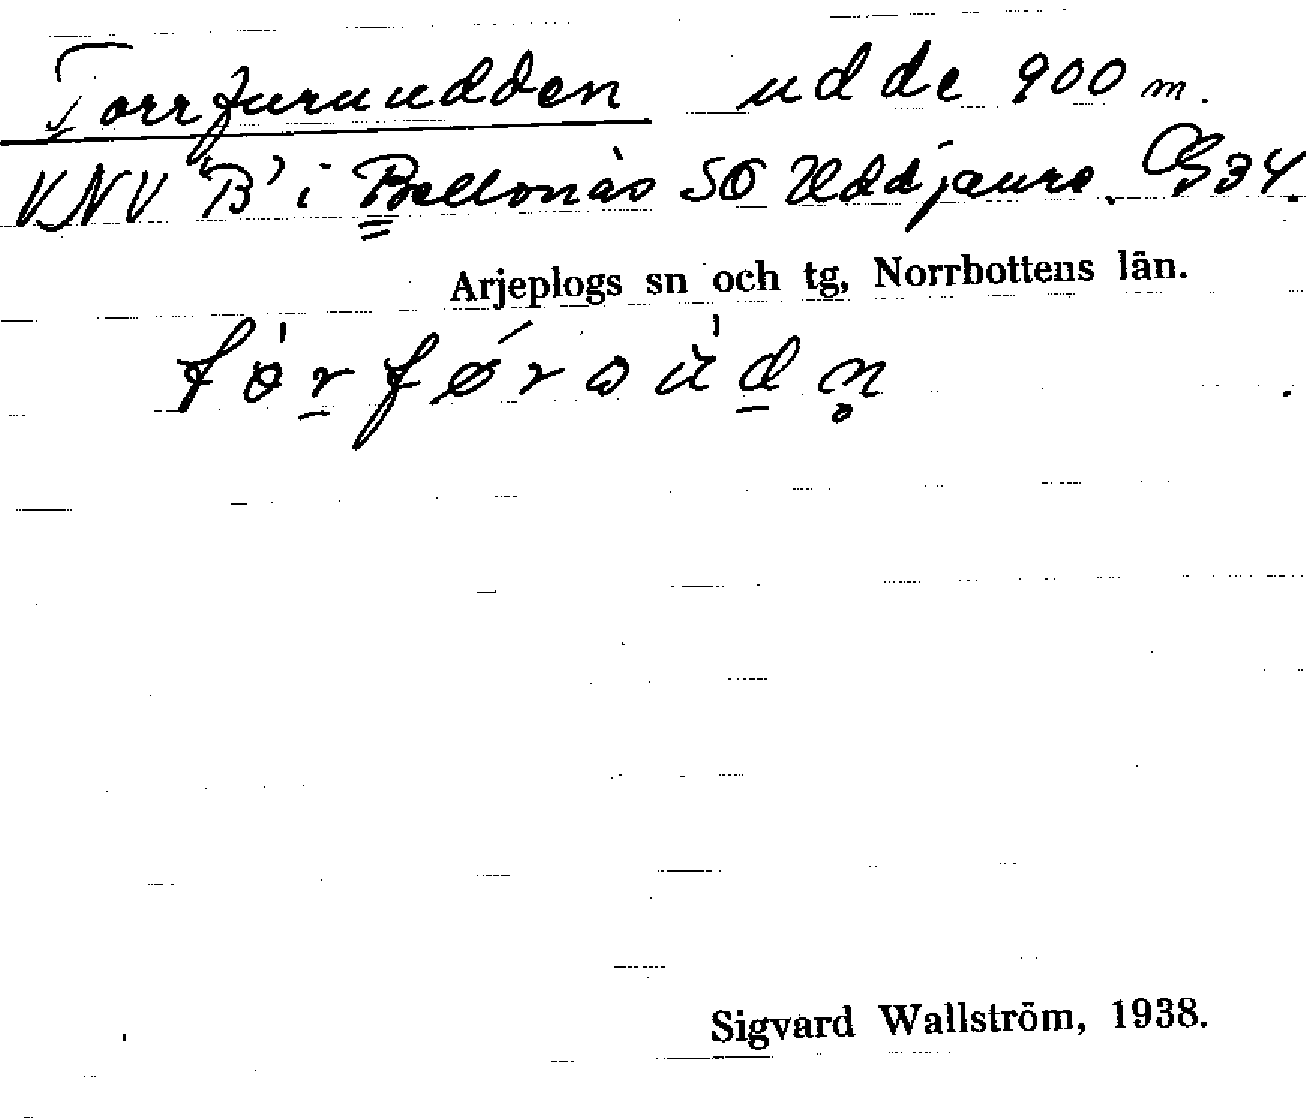 Torrfuruudden udde 900 m.
VNV "B" i Bellonäs SO Uddjaure. CG34.
Arjeplogs sn och tg, Norrbottens län.
Sigvard Wallström, 1938.